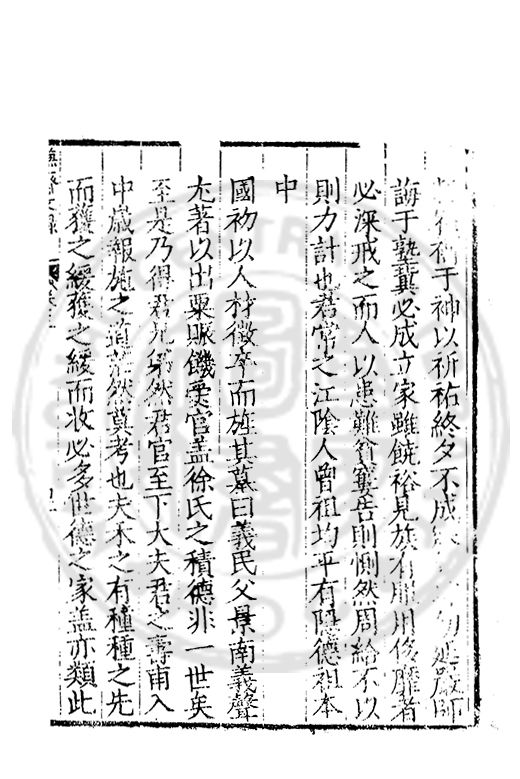 于神以祈祐終夕不成延嚴師
誨于塾冀必成立家雖饒裕見族有服用侈靡者
必深戒之而人以患難貧窶告則惻然周給不以
則力計也君常之江陰人曾祖均平有隱德祖本
中
國初以人材徵卒而旌其墓曰義民父景南義聲
尤著以出粟賑饑受官盖徐氏之積德非一世矣
至是乃得君兄弟然君官至下大夫君之壽甫入
中歲報施之道茫然莫考也夫禾之有種種之先
而獲之緩獲之緩而收必多世德之家盖亦類此